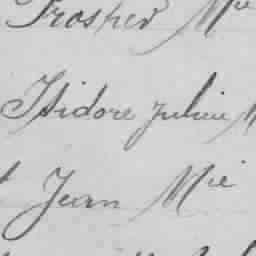 Prosper Mie
Isidore Julien
Jean Mie